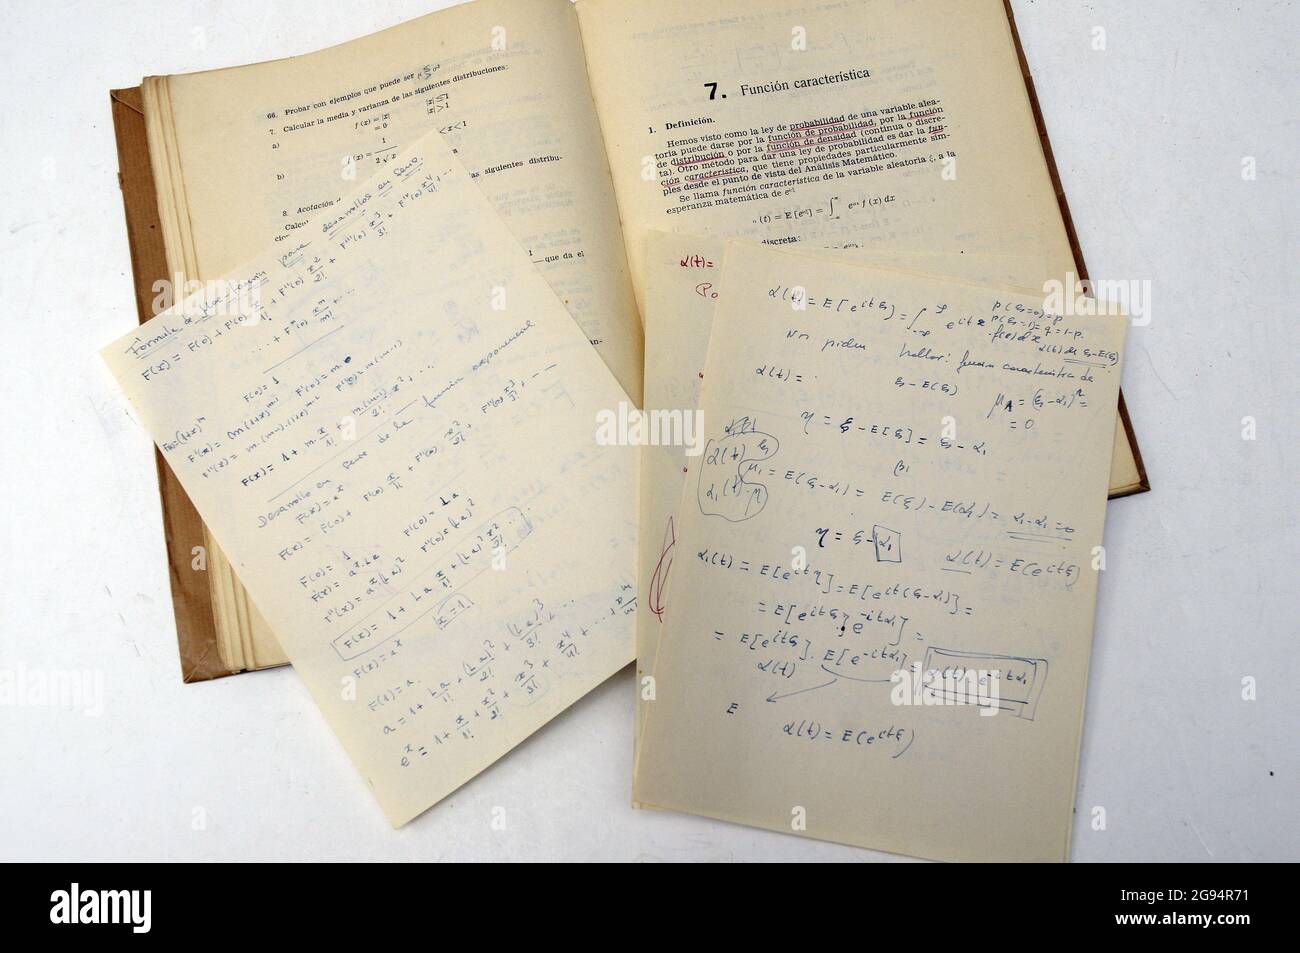 66. Probar con ejemplos que puede ser μ
7. Calcular la media y varianza de las siguientes distribuciones:
a) f (x) = |x| |x| ≤ 1
= 0 |x| > 1
b) f (x) = 1 / 2 √x < x < 1
as siguientes distribu-
8. Acotación
Calcu
1
que da el
an-
7. Función característica
1. Definición.
Hemos visto como la ley de probabilidad de una variable alea-
toria puede darse por la función de probabilidad, por la función
de distribución o por la función de densidad (continua o discre-
ta). Otro método para dar una ley de probabilidad es dar la fun-
ción característica, que tiene propiedades particularmente sim-
ples desde el punto de vista del Análisis Matemático.
Se llama función característica de la variable aleatoria ξ, a la
esperanza matemática de
(t) = E [e ] = ∫ f (x) dx
discreta:
Fórmula de para desarrollos en serie
F(x) = F(0) + F'(0) x/1! + F''(0) x²/2! + F'''(0) x³/3! + F''''(0) x⁴/4! + ...
... + Fⁿ(0) xᵐ/m! + ...
F(x)=(1+x)ᵐ F(0)=1
F'(x) = m(1+x)ᵐ⁻¹ F'(0) = m
F''(x) = m·(m-1)·(1+x)ᵐ⁻² F''(0) = m(m-1)
F(x) = 1 + m·x/1! + m·(m-1)/2! x² + ...
Desarrollo en serie de la función exponencial
F(x) = aˣ
F(x) = F(0) + F'(0) x/1! + F''(0) x²/2! + F'''(0) x³/3! + ...
F(0) = 1
F'(x) = aˣ·La F'(0) = La
F''(x) = aˣ(La)² F''(0) = (La)²
F(x) = 1 + La x/1! + (La)² x²/2! ...
F(x) = aˣ x=1
F(1) = a
a = 1 + La/1! + (La)²/2! + (La)³/3! ...
eˣ = 1 + x/1! + x²/2! + x³/3! + x⁴/4! + ... + xᵐ/m!
α(t)=
Po
α(t) = E[e^{itξ}] = ∫ e^{itx} f(x) dx
P(ξ=0)=p
P(ξ=1)=q=1-p.
α(t) de ξ-E(ξ)
Nos piden hallar: función característica de
α(t) = ξ - E(ξ)
= (ξ-α₁) =
= 0
η = ξ - E[ξ] = ξ - α₁
α(t) ξ
α₁(t) · η
β₁
μ₁ = E(ξ-α₁) = E(ξ) - E(α₁) = α₁-α₁ = 0
η = ξ - α₁
α(t) = E(e^{itξ})
α₁(t) = E[e^{itη}] = E[e^{it(ξ-α₁)}] =
= E[e^{itξ} · e^{-itα₁}] =
= E[e^{itξ}] · E[e^{-itα₁}] = α(t) · e^{-itα₁}
α(t)
E
α(t) = E(e^{itξ})
alamy
2G94R71
alamy
Image ID: 2G94R71
www.alamy.com